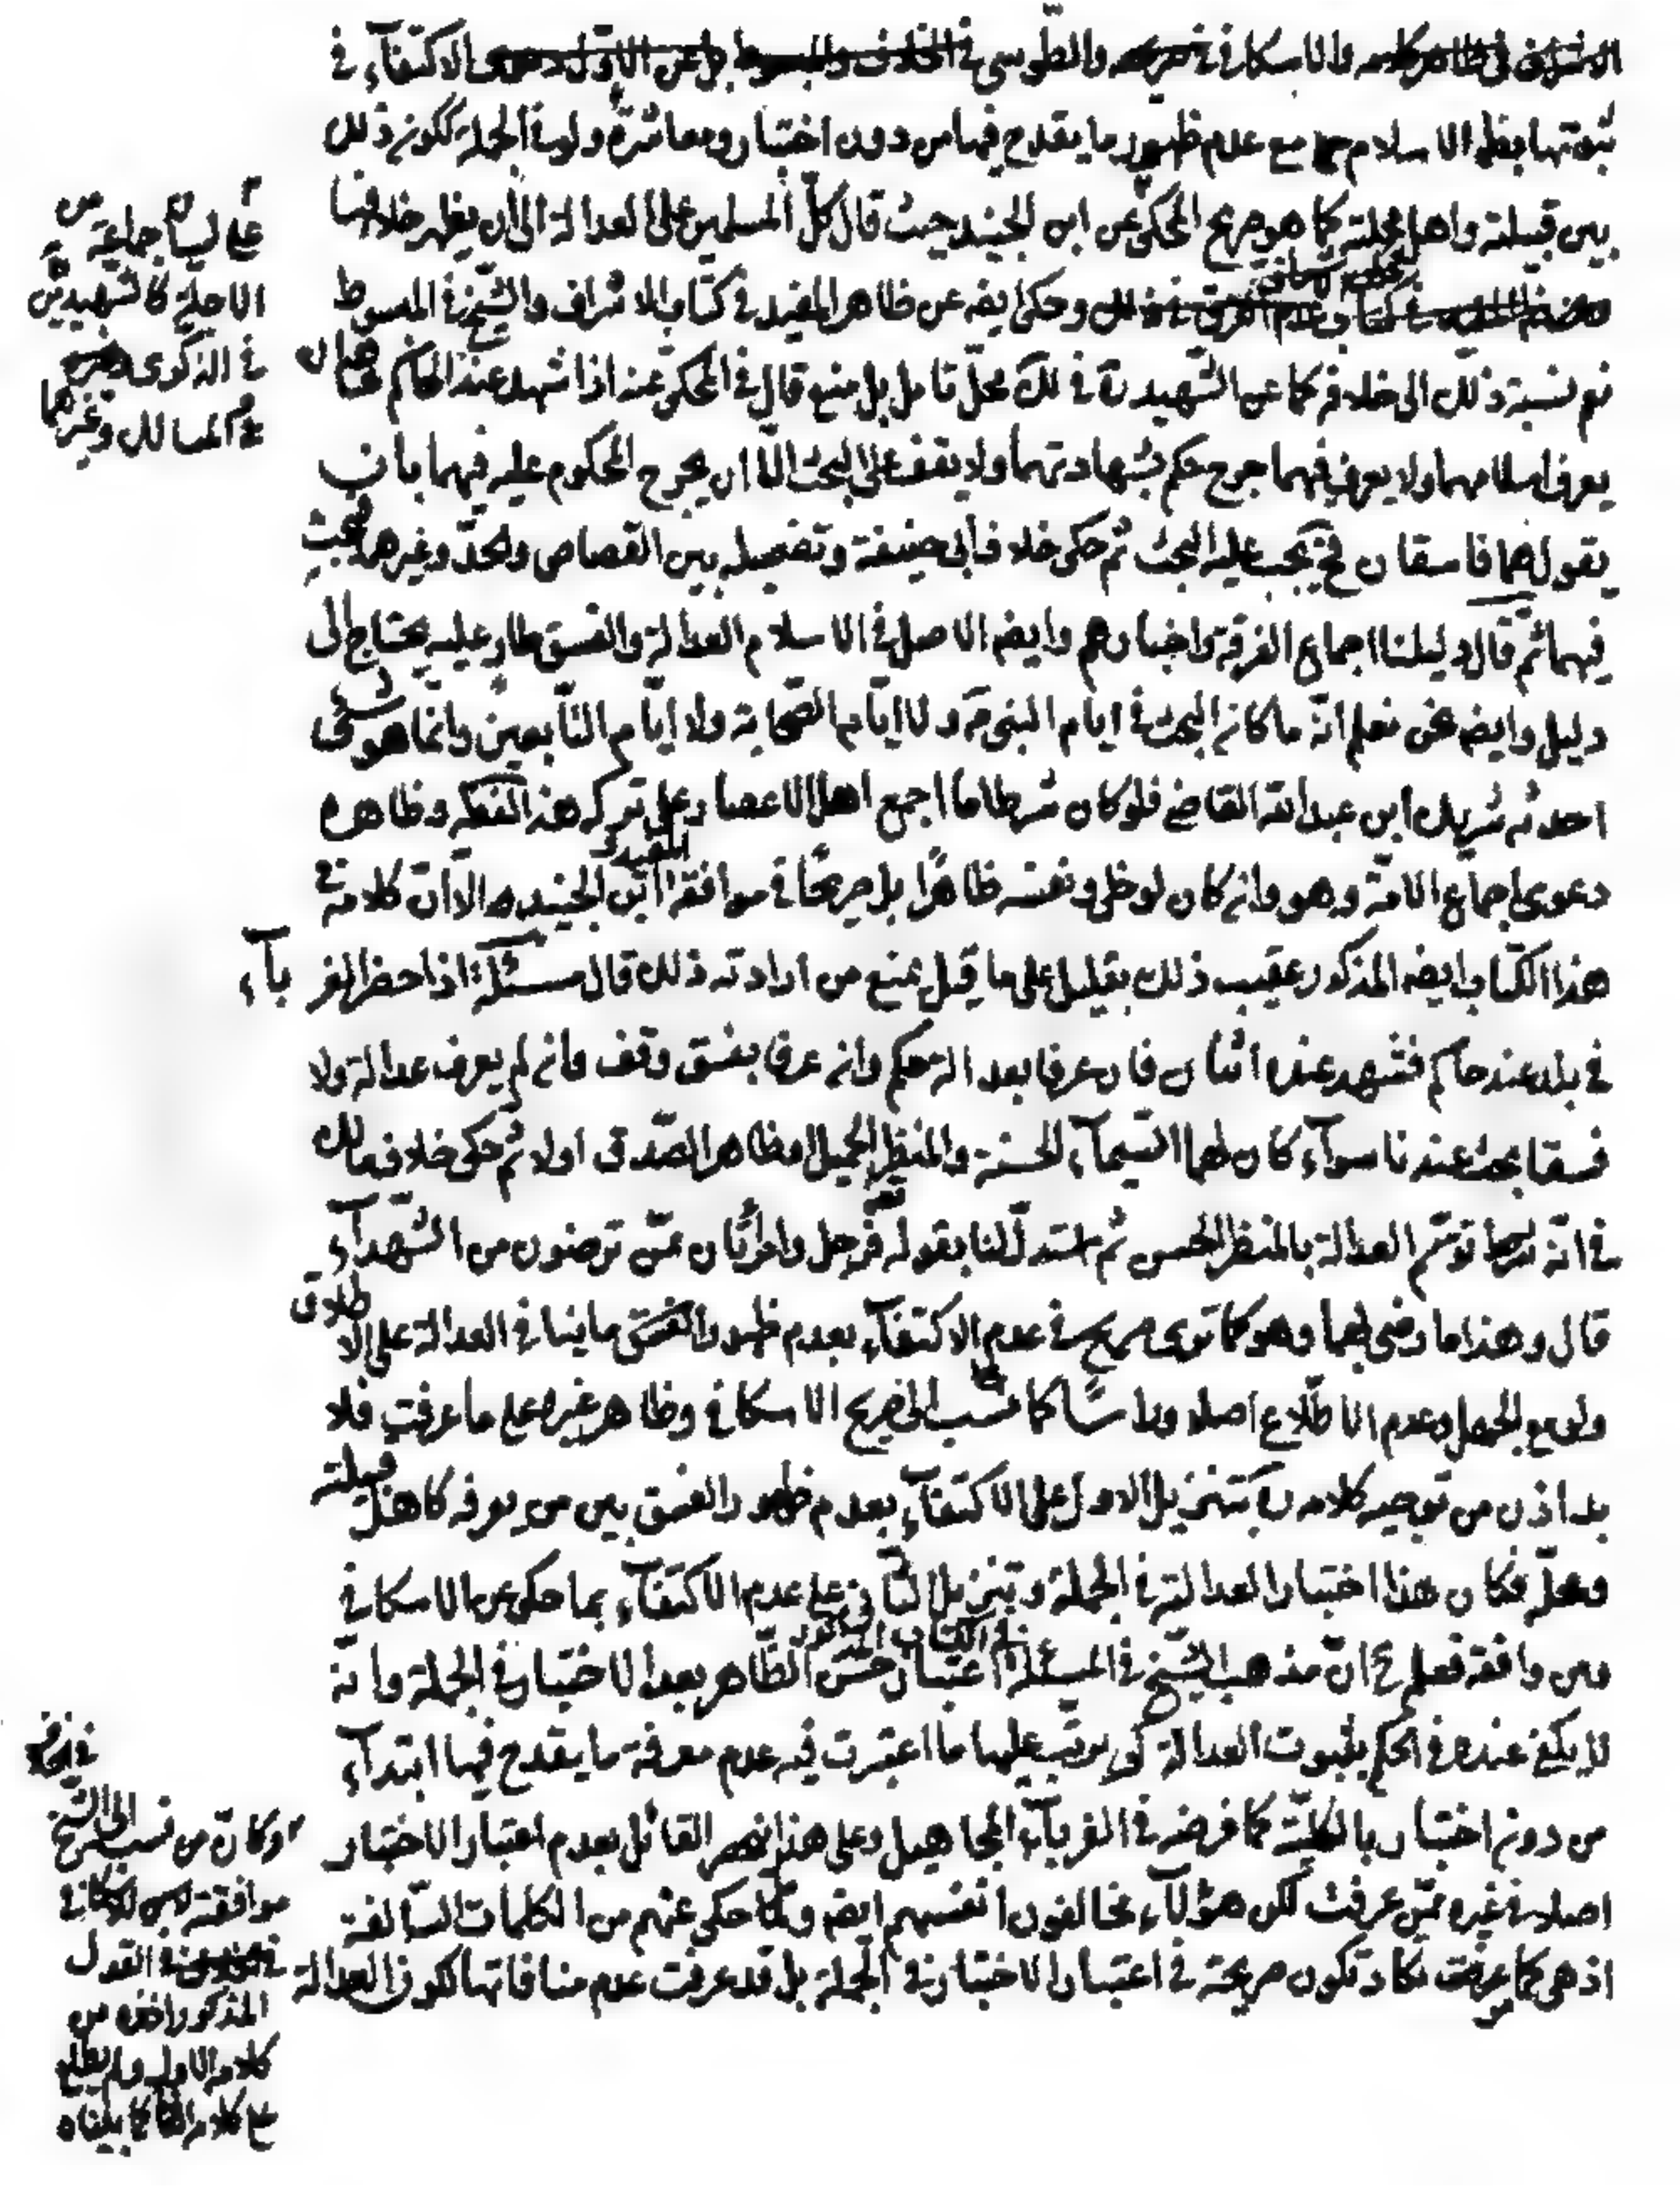 والاسكافي في والطوسي في الخلاف والمبسوط الاكتفآء في
ثبوتها بظهور الاسلام مع عدم ظهور ما يقدح فيها من دون اختبار ومعاشرة ولو في الجملة ككونه ذلك
بين قبيلته واهل محلته كما هو صريح المحكي عن ابن الجنيد حيث قال كلّ المسلمين على العدالة الى أن يظهر خلافها
وحكى ايضه عن ظاهر المفيد في كتاب الاشراف والشيخ في المبسوط
نعم نسبة ذلك الى خلافه كما عن الشهيد ثاني في لك محلّ تامل بل منع قال في المحكي عنه اذا شهد عند الحاكم شاهدان
يعرف اسلامهما ولا يعرف فيهما جرح حكم بشهادتهما ولا يقف على البحث الّا ان يجرح المحكوم عليه فيهما بان
يقول هما فاسقان فح يجب عليه البحث ثم حكى خلاف أبي حنيفة وتفصيله بين القصاص والحدّ وغيرهما فيبحث
فيهما ثمّ قال دليلنا اجماع الفرقة واخبارهم وايضه الاصل في الاسلام العدالة والفسق طار عليه يحتاج الى
دليل وايضه نحن نعلم انّه ما كانه البحث في ايام النبي ص ولا ايّام الصحابة ولا ايّام التابعين وانّما هو شئ
احدثه شريك ابن عبدالله القاضي فلو كان شرطا ما اجمع اهل الاعصار على تركه هذ الفظه وظاهره
دعوى اجماع الامّة وهو وانه كان لو خلي ونفسه ظاهرًا بل صريحًا في موافقة المفيد و ابن الجنيد ره الّا انّ كلامه في
هذا الكتاب ايضه المذكور عقيب ذلك بقليل على ما قيل يمنع من ارادته ذلك قال مسئلة اذا حضر الغربآء
في بلد عند حاكم فشهد عنده اثنان فان عرفا بعدالة حكم وانه عرفا بفسق وقف وانه لم يعرف عدالة ولا
فسقا بحث عندنا سوآء كان لهما السيمآء الحسنة والمنظر الجميل او ظاهر الصّدق اولا ثم حكى خلاف مالك
في انّه توسّم العدالة بالمنظر الحسن ثم استدلّ لنا بقوله تعه فرجل وامرأتان ممّن ترضون من الشهدآء
قال وهذا ما رضي بهما وهو كما ترى صريح في عدم الاكتفآء بعدم ظهور الفسق ما ينا في العدالة على الاطلاق
ولو مع الجهل وعدم الاطّلاع اصلا وراسًا كما نسب الى صريح الاسكافي وظاهر غيره على ما عرفت فلا
بد اذن من توجيه كلامه بتنزيل الاول على الاكتفآء بعدم ظهور الفسق بين من يعرفه كاهل قبيلته
ومحلّه فكان هذا اختبارا لعدالته في الجملة وتنزيل الثاني على عدم الاكتفآء بما حكي عن الاسكافي
ومن وافقه فعلم ح انّ مذهب الشيخ في المسئلة في الكتاب المذكور اعتبار حسن الظّاهر بعد الاختبار في الجملة وانّه
لا يكفي عنده في الحكم بثبوت العدالة كي يرتّب عليها ما اعتبرت فيه عدم معرفة ما يقدح فيها ابتدآء
من دونه اختبار بالكليّة كما فرضه في الغربآء المجاهيل وعلى هذا انحصر القائل بعدم اعتبار الاختبار
اصلا في غيره ممّن عرفت لكن هؤلآء مخالفون انفسهم ايضه وكما حكي عنهم من الكلمات السّالفة
اذ هي كما عرفت تكاد تكون صريحة في اعتبار الاختبار في الجملة بل قد عرفت عدم منافاتها لكون العدالة
على لسان جماعة من
الاجلة كالشهيدين
في الذكرى
و المسالك وغيرهما
وكانّ من نسب الى الشيخ في الخلاف
موافقة الاسكافي
في القول
المذكور اخذه من
كلامه الاول ولم يطلع
على كلامه الثاني كما بيناه